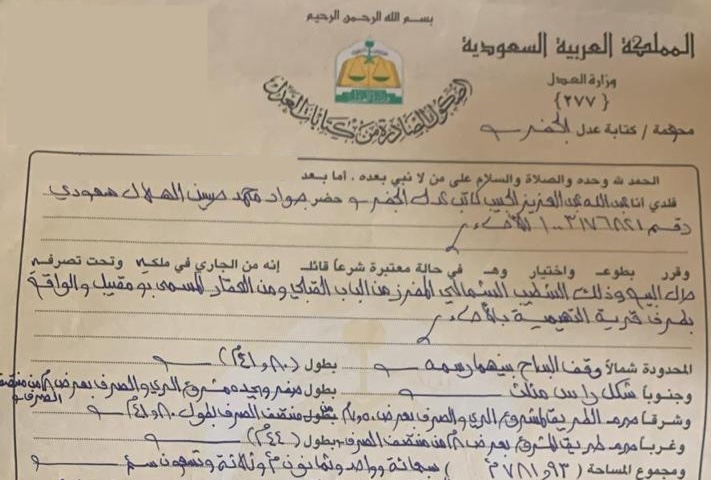 بسم الله الرحمن الرحيم
المملكة العربية السعودية
وزارة العدل
{٢٧٧}
محكمة / كتابة عدل الجفر
الصكوك الصادرة من كتابات العدل
الحمد لله وحده والصلاة والسلام على من لا نبي بعده ، أما بعد
فلدي أنا عبدالله عبدالعزيز كاتب عدل الجفر حضر جواد محمد سعودي
وقرر بطوعـ واختيار وهـ في حالة معتبرة شرعاً قائلـ إنه من الجاري في ملكي وتحت تصرفي
حال البيع وذلك الشمالي المفرز من الباب القبلي ومن العقار المسمى بو مقبيل والواقع
بطرف قرية التهيمية بالأحساء
المحدودة شمالاً وقف بينهما رسمه بطول (
وجنوباً شكل راس مثلث بطول صفر ويحده مشروع الري والصرف بعرض ٨م من منتصف الصرف
وشرقاً الطريق لمشروع الري والصرف بعرض بطول منتصف الصرف بطول
وغرباً طريق المشروع بعرض ٨م من منتصف الصرف بطول (٤٤م)
ومجموع المساحة (٧٨١,٩٣م) سبعمائة وواحد وثمانون م وثلاثة وتسعون سم